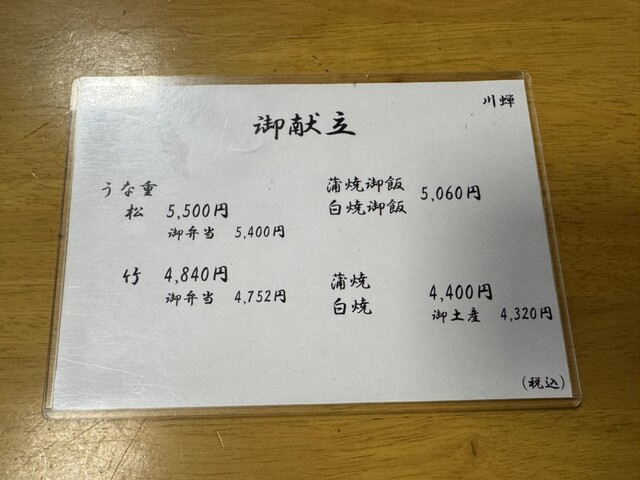 川蝉
御献立
うな重
松 5,500円
御弁当 5,400円
竹 4,840円
御弁当 4,752円
蒲焼御飯
白焼御飯
5,060円
蒲焼
白焼
4,400円
御土産 4,320円
(税込)